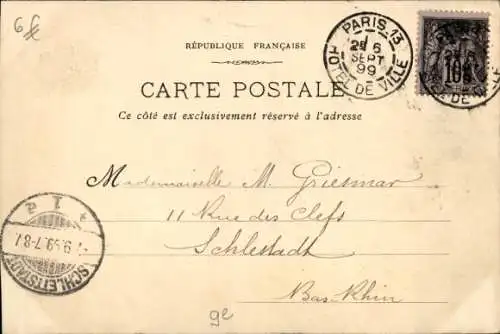 6£
RÉPUBLIQUE FRANÇAISE
CARTE POSTALE
Ce côté est exclusivement réservé à l'adresse
PARIS 13
6
SEPT
99
HOTEL DE VILLE
10
Mademoiselle M. Griesmar
11 Rue des Clefs
Schlestadt
Bas-Rhin
1 a
7.9.99.7-8
SCHLETTSTADT
ge